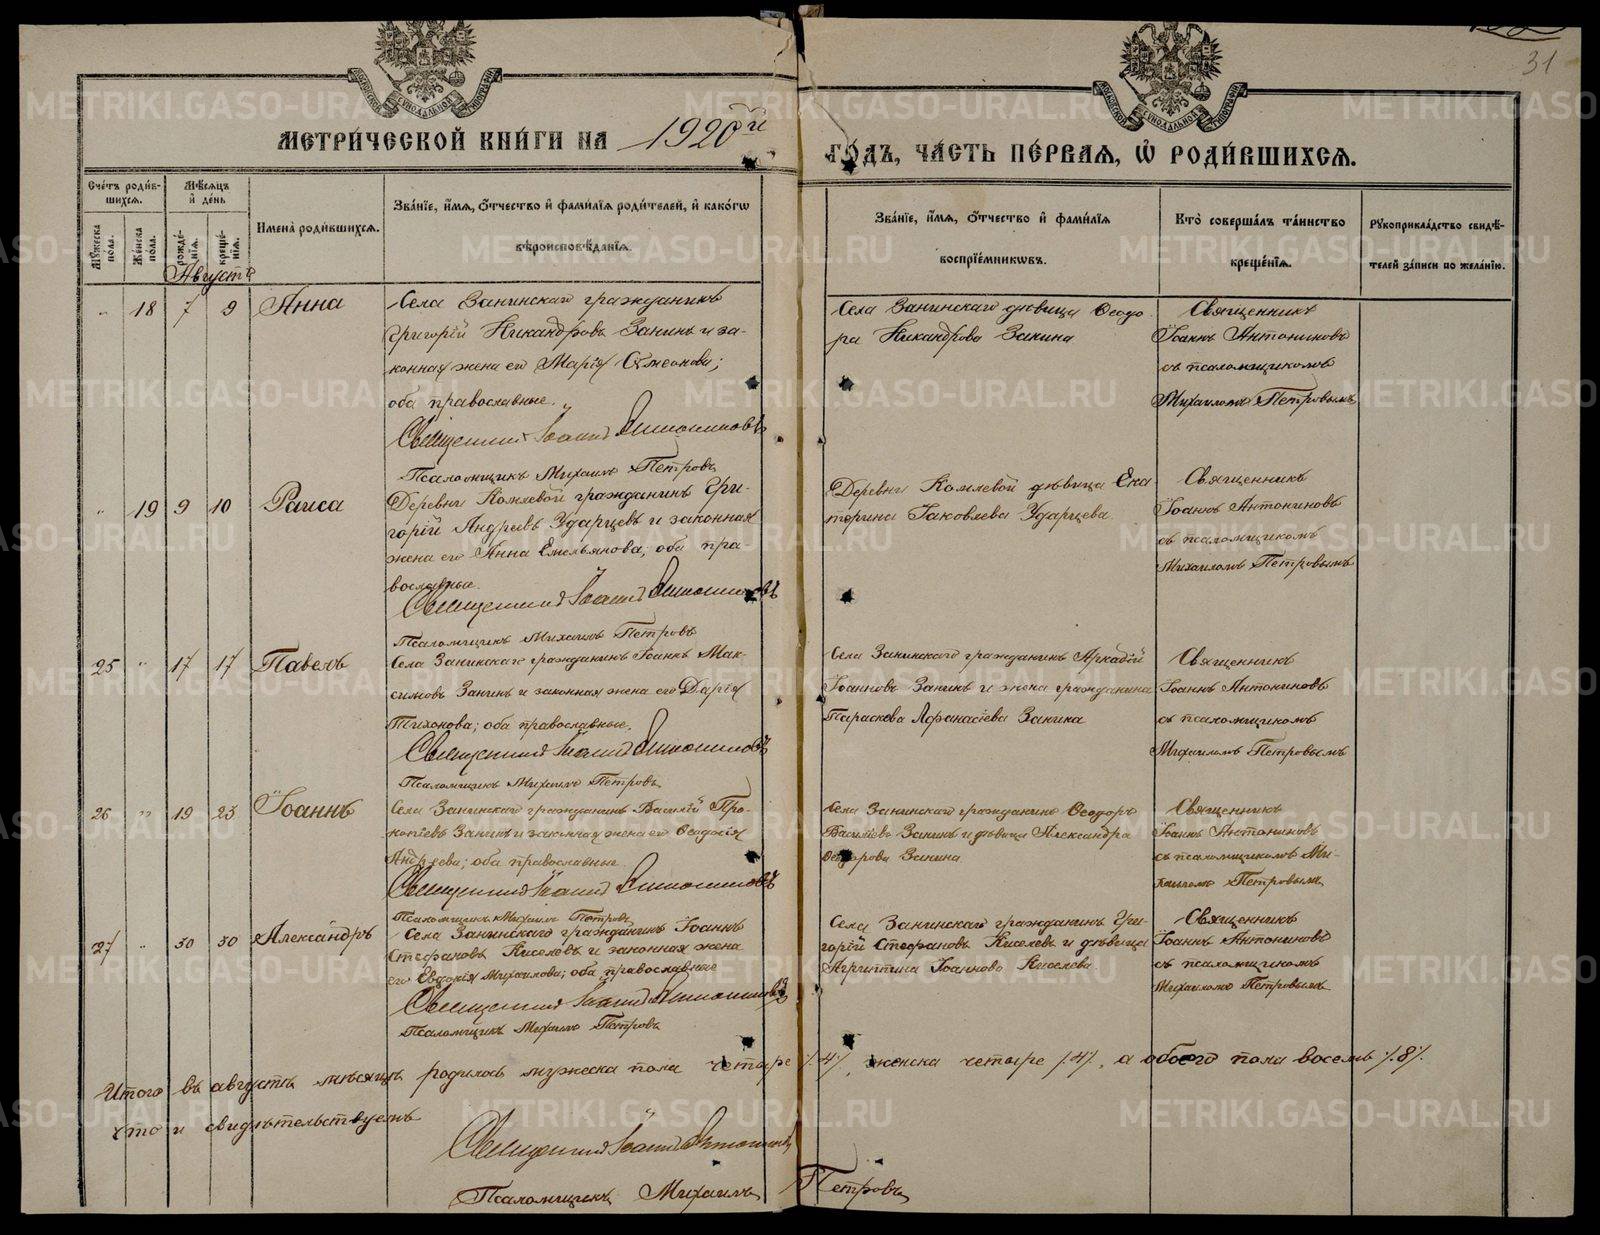 31
МЕТРИ́ЧЕСКОЙ КНИ́ГИ НА 1920й ГО́ДЪ, ЧА́СТЬ ПЕ́РВАЯ, Ѡ РОДИ́ВШИХСЯ.
Сче́тъ роди́вшихся.
Мꙋ́жеска пола.
Же́нска пола.
Мѣ́сяцъ и де́нь
рожде́нїя.
креще́нїя.
Имена̀ роди́вшихся.
Зва́нїе, и́мя, ѻ́тчество и фами́лїя роди́телей, и како́гѡ
вѣроисповѣ́данїя.
Зва́нїе, и́мя, ѻ́тчество и фами́лїя
воспрїе́мникѡвъ.
Кто̀ соверша́лъ та́инство
креще́нїя.
Рꙋкоприкла́дство свидѣ́-
телей за́писи по жела́нїю.
Августъ
„ 18 7 9 Анна
Села Занинскаго гражданинъ
Григорій Никандровъ Занинъ и за-
конная жена его Марія Сѵмеонова;
оба православные.
Священникъ Іоаннъ Антониновъ
Псаломщикъ Михаилъ Петровъ
Села Занинскаго дѣвица Ѳеодо-
ра Никандрова Занина
Священникъ
Іоаннъ Антониновъ
съ псаломщикомъ
Михаиломъ Петровымъ
„ 19 9 10 Раиса
Деревни Комлевой гражданинъ Гри-
горій Андреевъ Ударцевъ и законная
жена его Анна Емельянова; оба пра-
вославные.
Священникъ Іоаннъ Антониновъ
Псаломщикъ Михаилъ Петровъ
Деревни Комлевой дѣвица Ека
терина Іаковлева Ударцева.
Священникъ
Іоаннъ Антониновъ
съ псаломщикомъ
Михаиломъ Петровымъ
25 „ 17 17 Павелъ
Села Занинскаго гражданинъ Іоаннъ Мак-
симовъ Занинъ и законная жена его Дарія
Тихонова; оба православные.
Священникъ Іоаннъ Антониновъ
Псаломщикъ Михаилъ Петровъ
Села Занинскаго гражданинъ Аркадій
Іоанновъ Занинъ и жена гражданина
Параскева Аѳанасіева Занина
Священникъ
Іоаннъ Антониновъ
съ псаломщикомъ
Михаиломъ Петровымъ
26 „ 19 23 Іоаннъ
Села Занинскаго гражданинъ Василій Про-
копіевъ Занинъ и законная жена его Ѳеодосія
Андреева; оба православные.
Священникъ Іоаннъ Антониновъ
Псаломщикъ Михаилъ Петровъ
Села Занинскаго гражданинъ Ѳеодоръ
Василіевъ Занинъ и дѣвица Александра
Ѳеодорова Занина
Священникъ
Іоаннъ Антониновъ
съ псаломщикомъ Ми-
хаиломъ Петровымъ
27 „ 30 30 Александръ
Села Занинскаго гражданинъ Іоаннъ
Стефановъ Киселевъ и законная жена
его Евдокія Михаилова; оба православные
Священникъ Іоаннъ Антониновъ
Псаломщикъ Михаилъ Петровъ
Села Занинскаго гражданинъ Гри-
горій Стефановъ Киселевъ и дѣвица
Агриппина Іоаннова Киселева.
Священникъ
Іоаннъ Антониновъ
съ псаломщикомъ
Михаиломъ Петровымъ
Итого въ августѣ мѣсяцѣ родилось мужеска пола четыре /.4/., женска четыре /.4/., а обоего пола восемь /.8/.
что и свидѣтельствуемъ
Священникъ Іоаннъ Антониновъ
Псаломщикъ Михаилъ Петровъ
METRIKI.GASO-URAL.RU